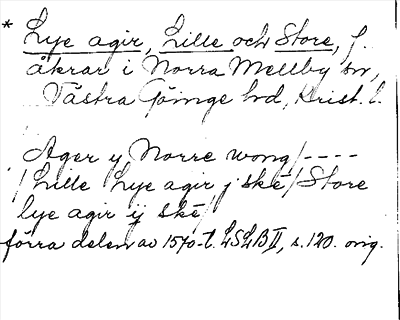 * Lye agir, Lille och Store, f.
åkrar i Norra Mellby sn,
Västra Göinge hd, Krist. l.
Ager y Norre wong /----
/ Lille lye agir j ske / Store
lye agir ij ske /
förra delen av 1570-t. LSLB II, s. 120. orig.